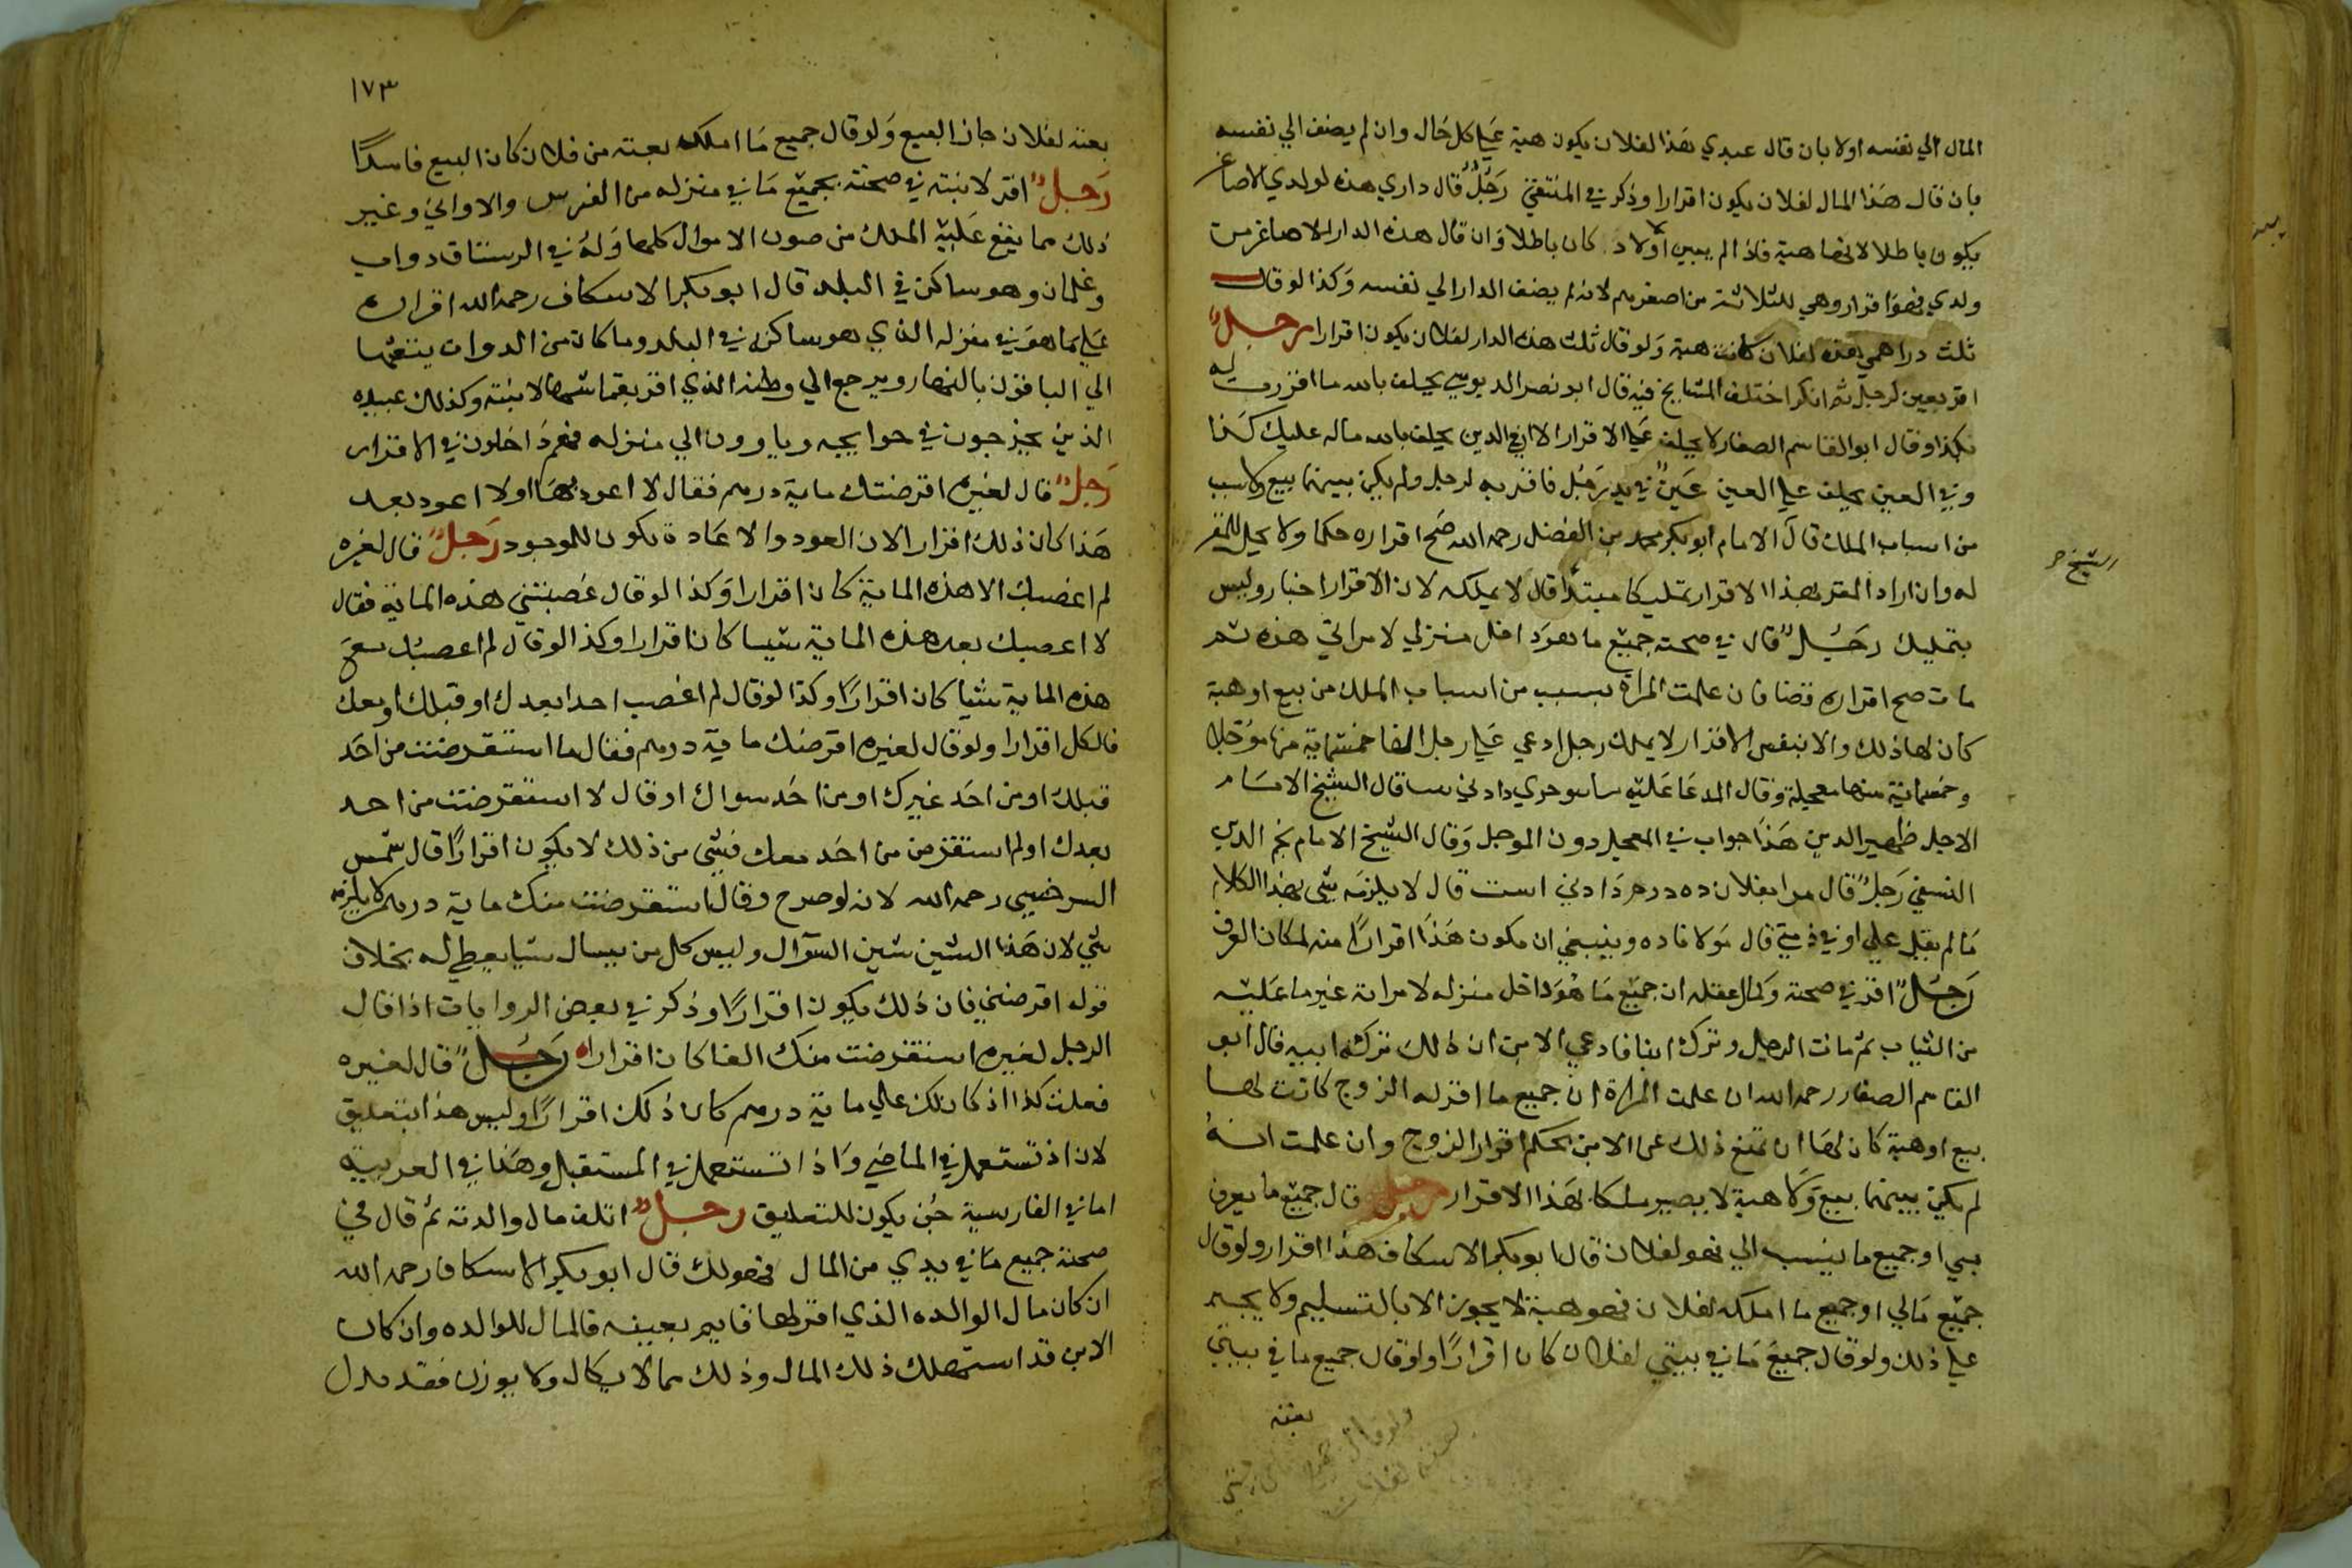 المال الي نفسه اولا بان قال عبدي هذا لفلان يكون هبة علي كل حال وان لم يضف الي نفسه
بان قال هذا المال لفلان يكون اقرارا وذكر في المنتقي رجل قال داري هذه لولدي الاصاغر
يكون باطلا لانها هبة فاذا لم يبين اولاد كان باطلا وان قال هذه الدار للاصاغر من
ولدي فهو اقرار وهي للثلاثة من اصغرهم لانه لم يضف الدار الي نفسه وكذا لو قال
ثلث دراهمي هذه لفلان كانت هبة ولو قال ثلث هذه الدار لفلان يكون اقرارا رجل
اقر بعين لرجل ثم انكر اختلف المشايخ فيه قال ابو نصر الدبوسي يحلف بالله ما اقررت له
بكذا وقال ابو القاسم الصفار لا يحلف علي الاقرار الا في الدين يحلف بالله ماله عليك كذا
وفي العين يحلف علي العين عين في يد رجل فاقر به لرجل ولم يكن بينهما بيع ولا سبب
من اسباب الملك قال الامام ابو بكر محمد بن الفضل رحمه الله صح اقراره حكما ولا يحل للمقر
له وان اراد المقر بهذا الاقرار تمليكا مبتدا قال لا يملكه لان الاقرار اخبار وليس
بتمليك رجل قال في صحته جميع ما هو داخل منزلي لامراتي هذه ثم
مات صح اقراره قضا فان علمت المراة بسبب من اسباب الملك من بيع او هبة
كان لها ذلك والا بنفس الاقرار لا يملك رجل ادعي علي رجل الفا خمسماية منها مؤجلة
وخمسماية منها معجلة وقال المدعا عليه قال الشيخ الامام
الاجل ظهير الدين هذا جواب في المعجل دون الموجل وقال الشيخ الامام نجم الدين
النسفي رجل قال مرا بفلان ده درم دادني است قال لا يلزمه شي بهذا الكلام
ما لم يقل علي او في ذمتي قال مولانا ده وينبغي ان يكون هذا اقرارا منه لمكان العرف
رجل اقر في صحته وكمال عقله ان جميع ما هو داخل منزله لامراته غير ما عليه
من الثياب ثم مات الرجل وترك ابنا فادعي الابن ان ذلك تركة ابيه قال ابو
القاسم الصفار رحمه الله ان علمت المراة ان جميع ما اقر له الزوج كانت لها
بيع او هبة كان لها ان تمنع ذلك عن الابن بحكم اقرار الزوج وان علمت انه
لم يكن بينهما بيع ولا هبة لا يصير ملكا بهذا الاقرار رجل قال جميع ما يعرف
بي او جميع ما ينسب الي فهو لفلان قال ابو بكر الاسكاف هذا اقرار ولو قال
جميع مالي او جميع ما املكه لفلان فهو هبة لا يجوز الا بالتسليم ولا يجبر
علي ذلك ولو قال جميع ما في بيتي لفلان كان اقرارا ولو قال جميع ما في بيتي
بعته
الشيخ
١٧٣
بعته لفلان جاز البيع ولو قال جميع ما املكه بعته من فلان كان البيع فاسدا
رجل اقر لابنته في صحته بجميع ما في منزله من الفرش والاواني وغير
ذلك مما يقع عليه الملك من صون الاموال كلها وله في الرستاق دواب
وغلمان وهو ساكن في البلد قال ابو بكر الاسكاف رحمه الله اقراره
علي ما هو في منزله الذي هو ساكن في البلد وما كان من الدواب يبتعثها
الي الباقون بالنهار ويرجع الي وطنه الذي اقر بقماشها لابنته وكذلك عبيده
الذين يخرجون في حوايجه وياوون الي منزله فهم داخلون في الاقرار
رجل قال لغيره اقرضتك ماية درهم فقال لا اعود بها او لا اعود بعد
هذا كان ذلك اقرارا لان العود والاعادة يكون للموجود رجل قال لغيره
لم اغصبك الا هذه الماية كان اقرارا وكذا لو قال غصبتني هذه الماية فقال
لا اغصبك بعد هذه الماية شيا كان اقرارا وكذا لو قال لم اغصبك مع
هذه الماية شيا كان اقرارا وكذا لو قال لم اغصب احدا بعدك او قبلك او معك
فالكل اقرار ولو قال لغيره اقرضتك ماية درهم فقال ما استقرضت من احد
قبلك او من احد غيرك او من احد سواك او قال لا استقرضت من احد
بعدك او لم استقرض من احد معك فشي من ذلك لا يكون اقرارا قال شمس
السرخسي رحمه الله لانه لو صرح وقال استقرضت منك ماية درهم لا يلزمه
شي لان هذا السين سين السؤال وليس كل من يسال شيا يعطي له بخلاف
قوله اقرضتني فان ذلك يكون اقرارا وذكر في بعض الروايات اذا قال
الرجل لغيره استقرضت منك الفا كان اقرارا رجل قال لغيره
فعلت كذا اذ كان لك علي ماية درهم كان ذلك اقرارا وليس هذا بتعليق
لان اذ تستعمل في الماضي واذا تستعمل في المستقبل وهذا في العربية
اما في الفارسية يكون للتعليق رجل اتلف مال والدته ثم قال في
صحته جميع ما في يدي من المال فهو لك قال ابو بكر الاسكاف رحمه الله
ان كان مال الوالدة الذي اقر لها قايم بعينه فالمال للوالده وان كان
الابن قد استهلك ذلك المال وذلك مما لا يكال ولا يوزن فقد